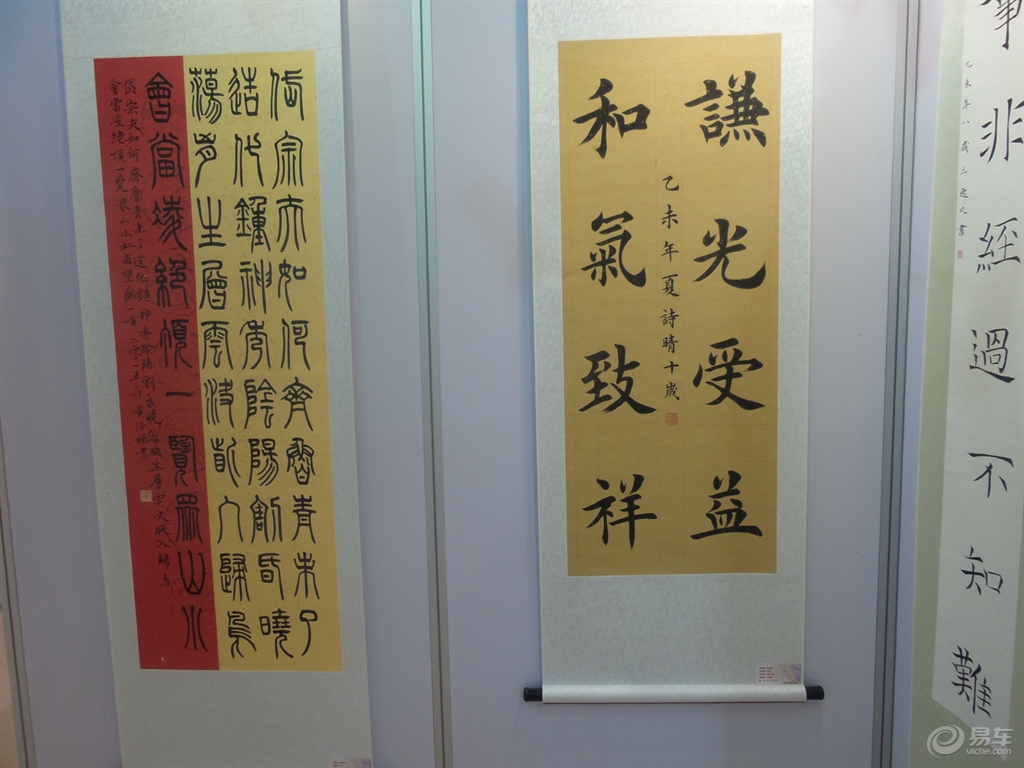 岱宗夫如何齊魯青未了
造化鍾神秀陰陽割昏曉
蕩胸生層雲決眥入歸鳥
會當凌絕頂一覽眾山小
岱宗夫如何齊魯青未了造化鍾神秀陰陽割昏曉
會當凌絕頂一覽衆山小
謙光受益
和氣致祥
乙未年夏詩晴十歲
事非經過不知難
乙未年八歲
書
易车
yiche.com